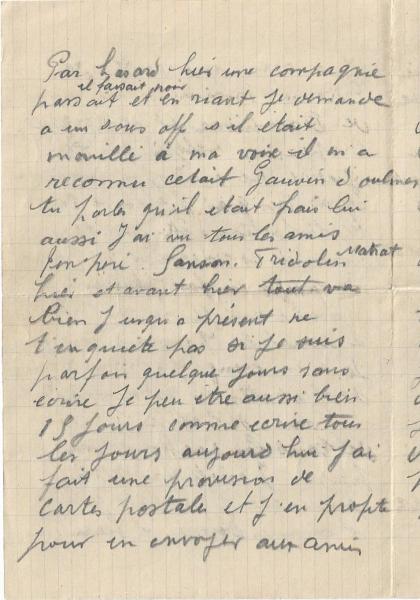 Par hasard hier une compagnie
il faisait noir
passait et en riant Je demande
a un sous off s il etait
mouillé à ma voix il m a
reconnu cetait Gauvin d
tu parles qu'il etait frais lui
aussi J ai vu tous les amis
Sanson. Tridolin
hier et avant hier tout va
bien Jusqu a présent ne
t enquiete pas si Je suis
parfois quelque Jours sans
ecrire Je peu etre aussi bien
15 Jours comme ecrire tous
les Jours aujourd hui J ai
fait une provision de
cartes postales et J en profite
pour en envoyer aux amis